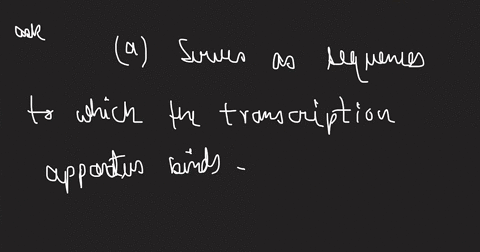 ask
(a) Serves as sequences
to which the transcription
apparatus binds -